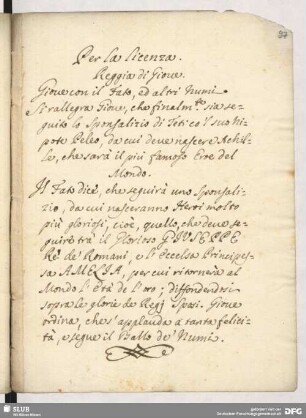 37
Per la licenza.
Reggia di Giove.
Giove con il Fato, ed altri Numi
Si rallegra Giove, che finalm.te sia se-
guito lo Sponsalizio di Teti co'l suo Ni-
pote Peleo, da cui deve nascere Achil-
le, che sarà il più famoso Eroe del
Mondo.
Il Fato dice, che seguirà uno Sponsali-
zio, da cui nasceranno Heroi molto
più gloriosi, cioè, quello, che deve se-
guire trà il Glorioso GIUSEPPE
Rè de' Romani, e l'Eccelsa Principes-
sa AMELIA, per cui ritornerà al
Mondo l'Età de l'oro; diffondendosi
sopra le glorie de Regj Sposi. Giove
ordina, che s'applauda à tanta felici-
tà, e segue il Ballo de' Numi.
SLUB
Wir führen Wissen.
gefördert von der
Deutsche Forschungsgemeinschaft DFG